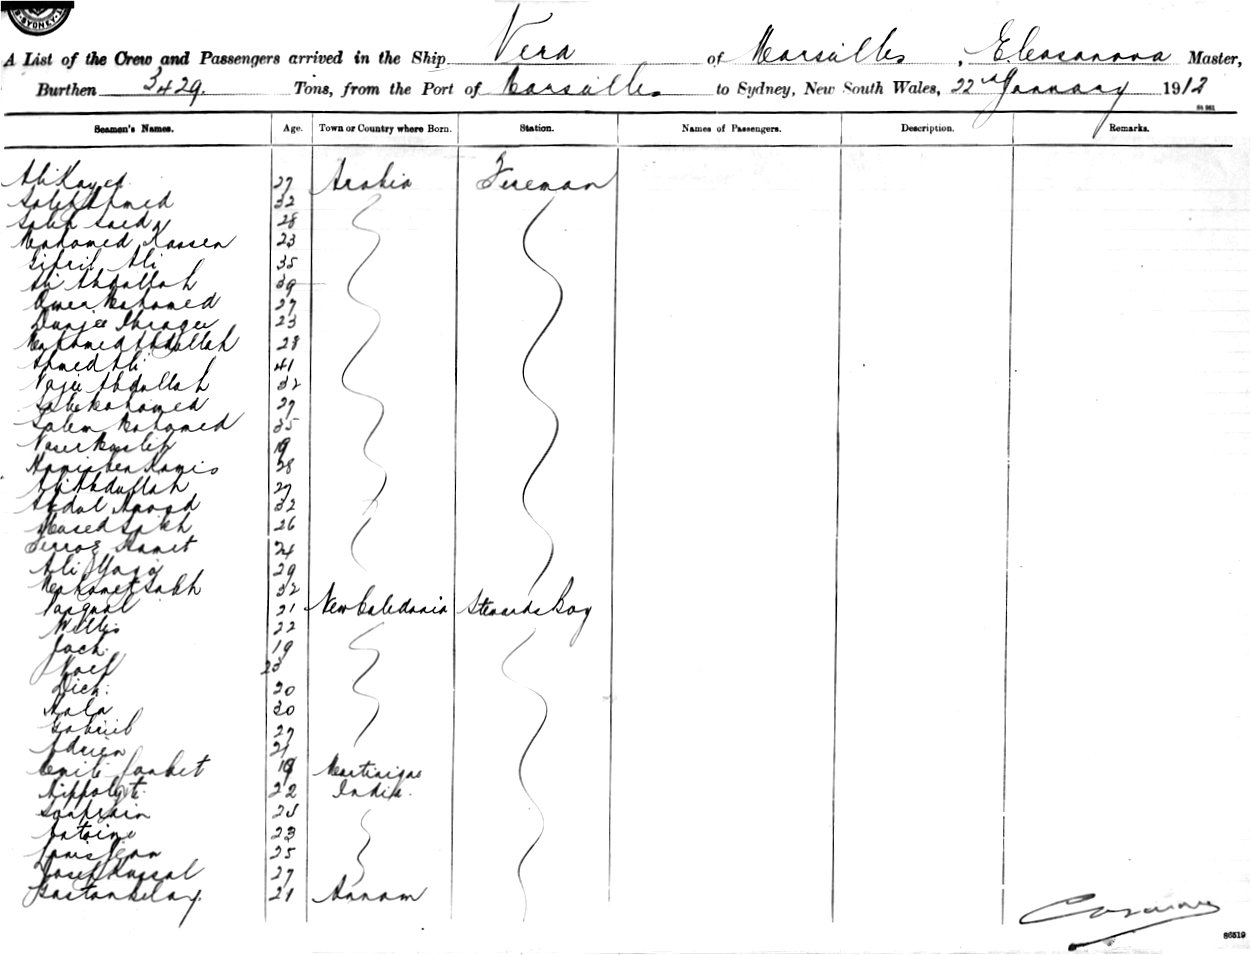 SYDNEY
A List of the Crew and Passengers arrived in the Ship Vera of Marseilles, E Casanova Master,
Burthen 3429. Tons, from the Port of Marseilles to Sydney, New South Wales, 22nd January 1912
Seamen's Names. Age. Town or Country where Born. Station. Names of Passengers. Description. Remarks.
Ali Kayed 27 Arabia Fireman
Saleh Ahmed 32
Saleh Saeda 28
Mohamed Kassen 23
Gifril Ali 35
Ali Abdallah 39
Omer Mohamed 27
23
Mohamed Abdullah 28
Ahmed Ali 41
Nagie Abdullah 32
Saleh Mohamed 27
Salem Mohamed 35
Naser Musleh 19
Hamis ben Kamis 28
Ali Abdullah 27
Abdul 32
Mased Saleh 26
24
Ali Yaya 29
Mohamet Saleh 32
21 New Caledonia Stewards Boy
Willis 22
Jack. 19
Noel 23
Dick. 20
Aala 20
Gabriel 27
Adrien 21
19 Martinique
Hippolyte 22 India.
25
Antoine 23
Louis Jean 25
Joseph 27
Gaston 21 Annam
86519